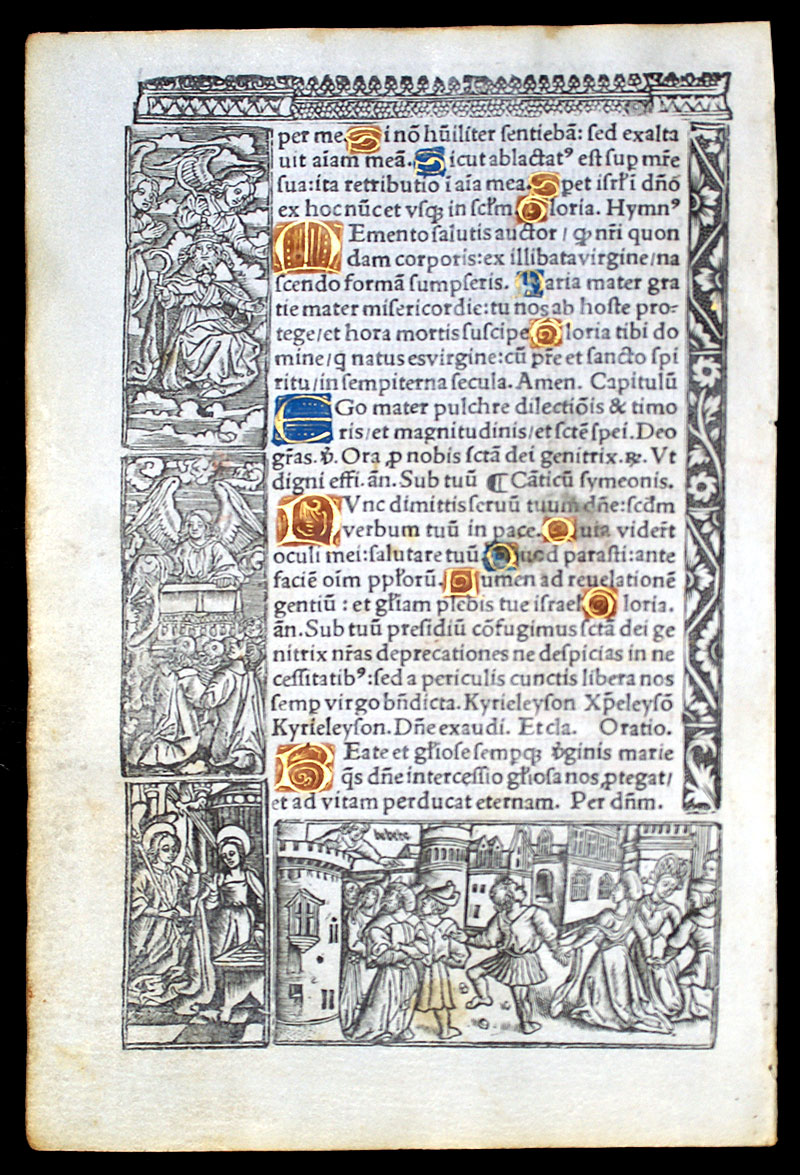 per me. Si nō hūiliter sentiebā: sed exalta
uit aīam meā. Sicut ablactatꝰ est sup mr̄e
sua: ita retributio ī aīa mea. Spet isrl̄i dn̄o
ex hoc nūc et vsqꝫ in scl̄m Gloria. Hymnꝰ
MEmento salutis auctor / qꝫ nr̄i quon
dam corporis: ex illibata virgine / na
scendo formā sumpseris. Maria mater gra
tie mater misericordie: tu nos ab hoste pro-
tege / et hora mortis suscipe Gloria tibi do
mine / q̄ natus es virgine: cū pr̄e et sancto spi
ritu / in sempiterna secula. Amen. Capitulū
EGo mater pulchre dilectiōis & timo
ris / et magnitudinis / et sctē spei. Deo
gr̄as. ℣. Ora ꝓ nobis sctā dei genitrix. ℟. Vt
digni effi. ān. Sub tuū ¶ Cāticū symeonis.
NVnc dimittis seruū tuum dn̄e: scd̄m
verbum tuū in pace. Quia vider̄t
oculi mei: salutare tuū. Quod parasti: ante
faciē oīm ppl̄orū. Lumen ad reuelationē
gentiū : et gl̄iam plebis tue israel Gloria.
ān. Sub tuū presidiū cōfugimus sctā dei ge
nitrix nr̄as deprecationes ne despicias in ne
cessitatibꝰ: sed a periculis cunctis libera nos
semp virgo bn̄dicta. Kyrieleyson Xp̄eleysō
Kyrieleyson. Dn̄e exaudi. Et cla. Oratio.
BEate et gl̄iose sempqꝫ v̄ginis marie
q̄s dn̄e intercessio gl̄iosa nos ꝓtegat /
et ad vitam perducat eternam. Per dn̄m.